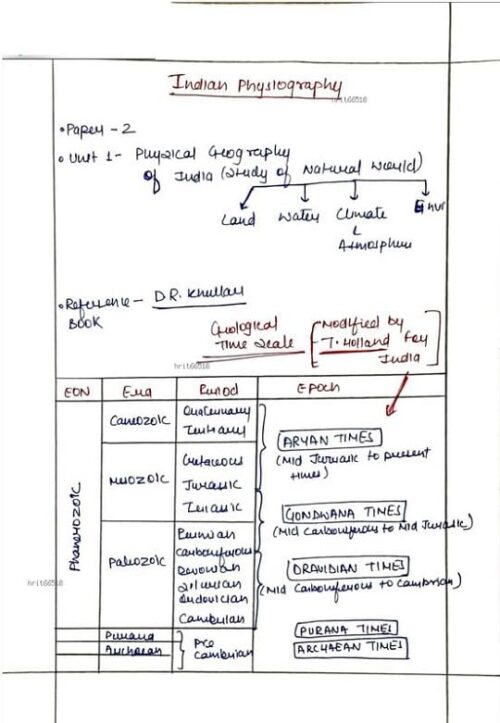 Indian Physiography
hrit66518
• Paper - 2
• Unit 1 - Physical Geography
of India (Study of Natural World)
Land Water Climate Envr
Atmosphere
• Reference - DR. Khullar
Book
Geological
Time Scale
[Modified by
T. Holland for
India]
hrit66518
EON Era Period Epoch
Phanerozoic
Cainozoic
Quaternary
Tertiary
Mesozoic
Cretaceous
Jurassic
Triassic
Paleozoic
Permian
Carboniferous
Devonian
Silurian
Ordovician
Cambrian
hrit66518
Purana
Archaean
Pre
Cambrian
ARYAN TIMES
(Mid Jurassic to present
times)
GONDWANA TIMES
(Mid Carboniferous to Mid Jurassic)
DRAVIDIAN TIMES
(Mid Carboniferous to Cambrian)
PURANA TIMES
ARCHAEAN TIMES